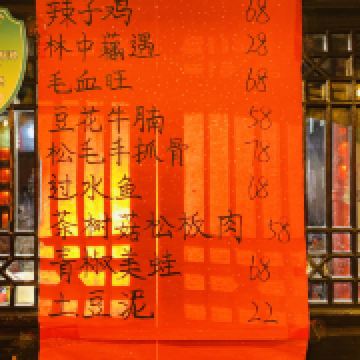 辣子鸡 68
林中藕遇 28
毛血旺 68
豆花牛腩 58
松毛手抓骨 78
过水鱼 68
茶树菇松板肉 58
青椒美蛙 68
土豆泥 22